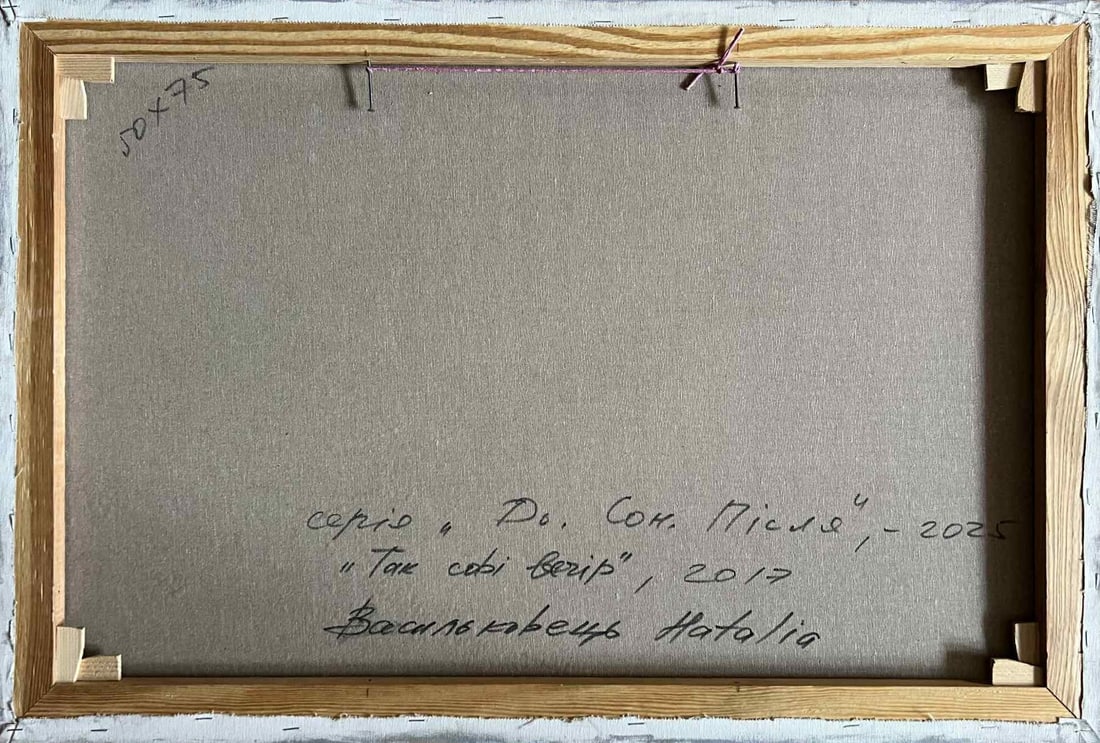 50 x 75
серія „До. Сон. Після", - 2025
"Так собі вечір", 2017
Васильковець Natalia